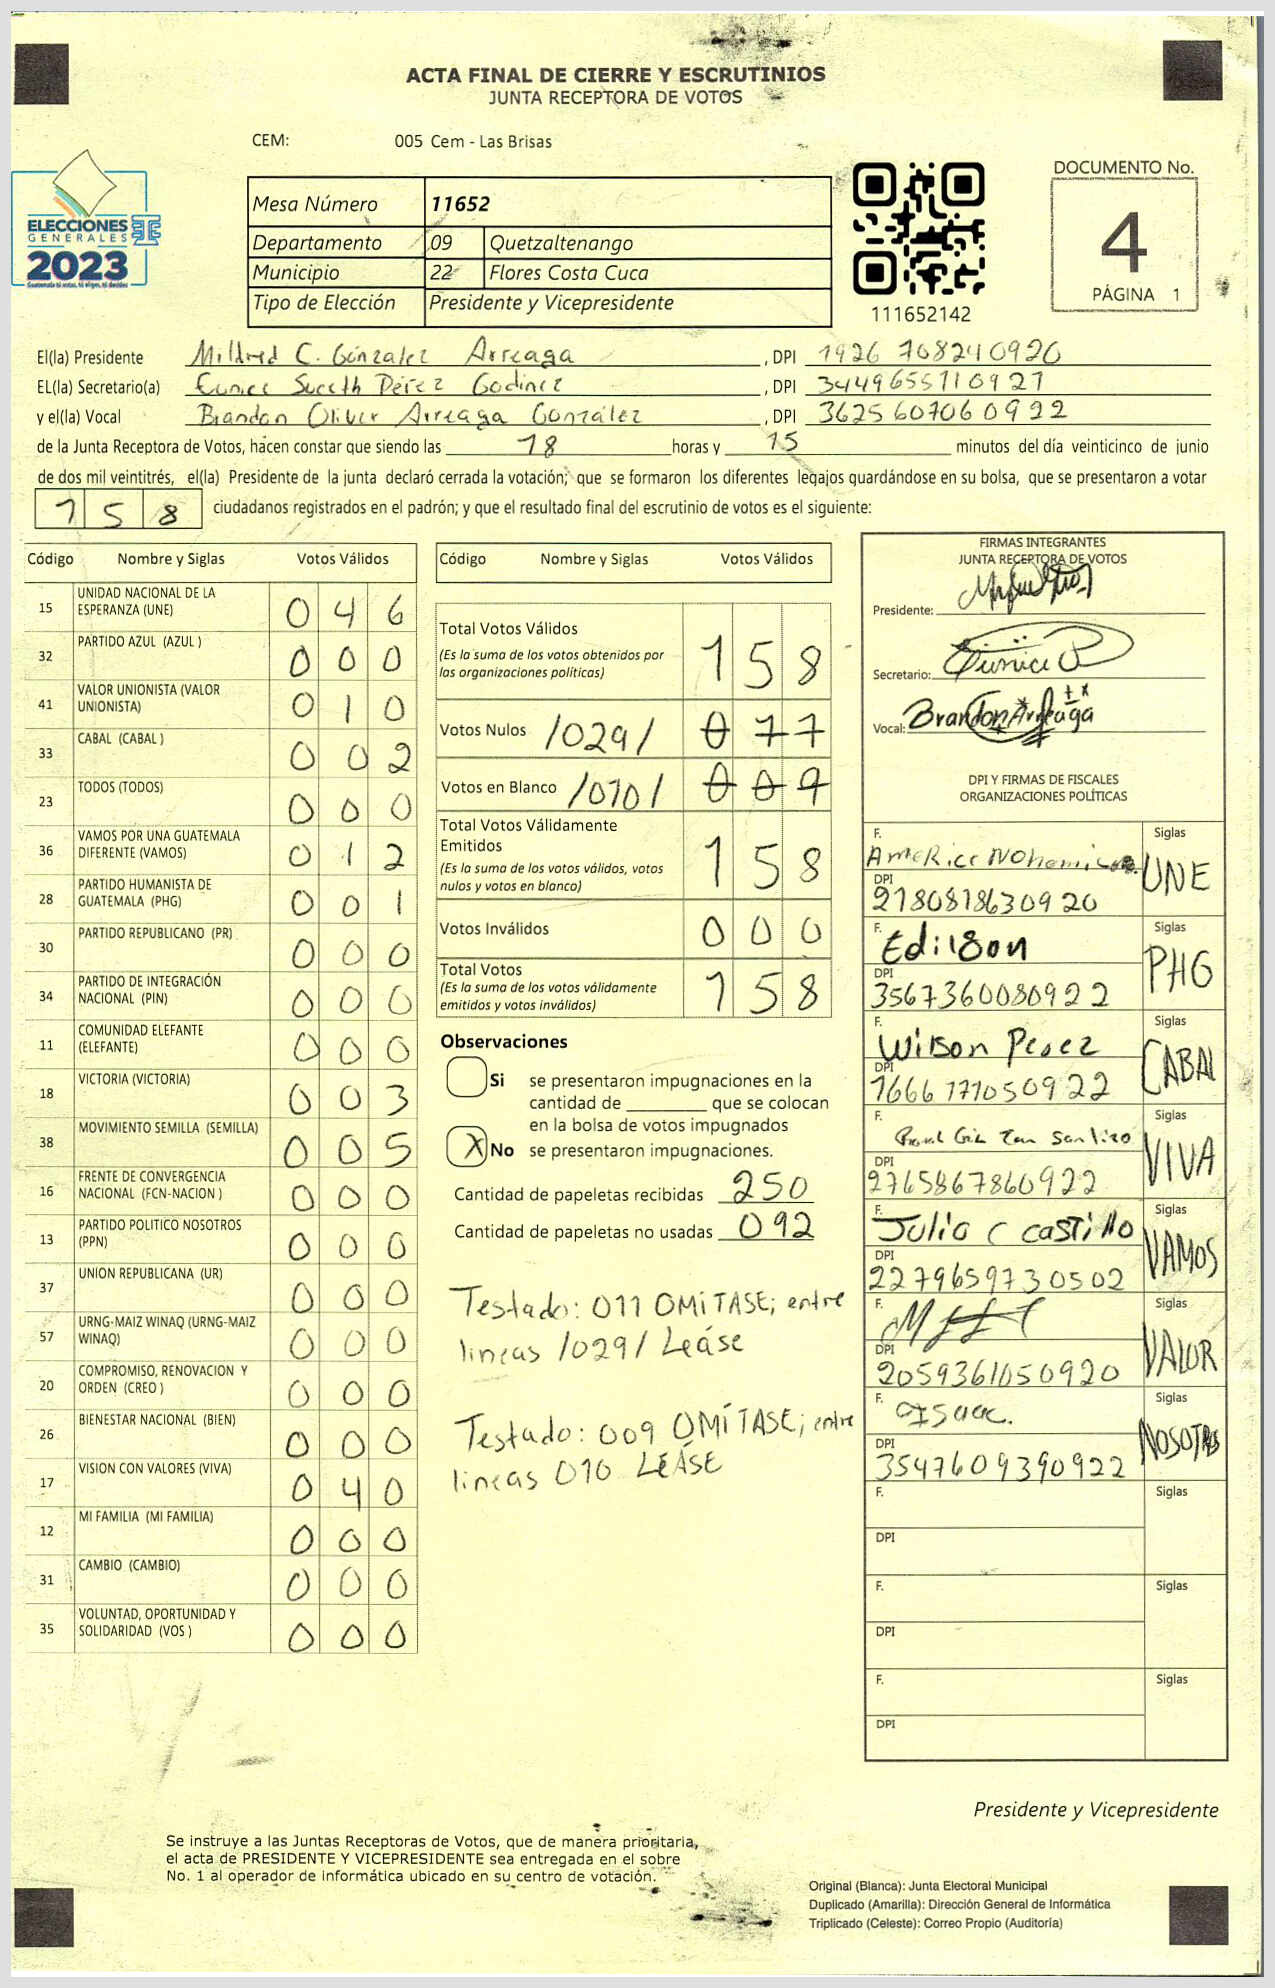 ACTA FINAL DE CIERRE Y ESCRUTINIOS
JUNTA RECEPTORA DE VOTOS
CEM: 005 Cem - Las Brisas
ELECCIONES
GENERALES
2023
Mesa Número 11652
Departamento 09 Quetzaltenango
Municipio 22 Flores Costa Cuca
Tipo de Elección Presidente y Vicepresidente
111652142
DOCUMENTO No.
4
PÁGINA 1
El(la) Presidente Mildred C. González Arreaga , DPI 1926 708240920
EL(la) Secretario(a) Eunice Suceth Pérez Godinez , DPI 3449655710921
y el(la) Vocal Brandon Oliver Arreaga González , DPI 3625607060922
de la Junta Receptora de Votos, hacen constar que siendo las 18 horas y 15 minutos del día veinticinco de junio
de dos mil veintitrés, el(la) Presidente de la junta declaró cerrada la votación; que se formaron los diferentes legajos guardándose en su bolsa, que se presentaron a votar
158 ciudadanos registrados en el padrón; y que el resultado final del escrutinio de votos es el siguiente:
Código Nombre y Siglas Votos Válidos
15 UNIDAD NACIONAL DE LA ESPERANZA (UNE) 0 4 6
32 PARTIDO AZUL (AZUL ) 0 0 0
41 VALOR UNIONISTA (VALOR UNIONISTA) 0 1 0
33 CABAL (CABAL ) 0 0 2
23 TODOS (TODOS) 0 0 0
36 VAMOS POR UNA GUATEMALA DIFERENTE (VAMOS) 0 1 2
28 PARTIDO HUMANISTA DE GUATEMALA (PHG) 0 0 1
30 PARTIDO REPUBLICANO (PR) 0 0 0
34 PARTIDO DE INTEGRACIÓN NACIONAL (PIN) 0 0 0
11 COMUNIDAD ELEFANTE (ELEFANTE) 0 0 0
18 VICTORIA (VICTORIA) 0 0 3
38 MOVIMIENTO SEMILLA (SEMILLA) 0 0 5
16 FRENTE DE CONVERGENCIA NACIONAL (FCN-NACION ) 0 0 0
13 PARTIDO POLITICO NOSOTROS (PPN) 0 0 0
37 UNION REPUBLICANA (UR) 0 0 0
57 URNG-MAIZ WINAQ (URNG-MAIZ WINAQ) 0 0 0
20 COMPROMISO, RENOVACION Y ORDEN (CREO ) 0 0 0
26 BIENESTAR NACIONAL (BIEN) 0 0 0
17 VISION CON VALORES (VIVA) 0 4 0
12 MI FAMILIA (MI FAMILIA) 0 0 0
31 CAMBIO (CAMBIO) 0 0 0
35 VOLUNTAD, OPORTUNIDAD Y SOLIDARIDAD (VOS ) 0 0 0
Código Nombre y Siglas Votos Válidos
Total Votos Válidos 1 5 8
(Es la suma de los votos obtenidos por
las organizaciones políticas)
Votos Nulos /029/ 0 7 7
Votos en Blanco /010/ 0 0 9
Total Votos Válidamente
Emitidos 1 5 8
(Es la suma de los votos válidos, votos
nulos y votos en blanco)
Votos Inválidos 0 0 0
Total Votos 1 5 8
(Es la suma de los votos válidamente
emitidos y votos inválidos)
Observaciones
Si se presentaron impugnaciones en la
cantidad de ________ que se colocan
en la bolsa de votos impugnados
X No se presentaron impugnaciones.
Cantidad de papeletas recibidas 250
Cantidad de papeletas no usadas 092
Testado: 011 OMíTASE; entre
lineas /029/ Leáse
Testado: 009 OMÍTASE; entre
lineas 010 LEÁSE
FIRMAS INTEGRANTES
JUNTA RECEPTORA DE VOTOS
Presidente:
Secretario: Eunice P
Vocal: Brandon Arreaga
DPI Y FIRMAS DE FISCALES
ORGANIZACIONES POLÍTICAS
F. Siglas
UNE
DPI
2180818630920
F. Edilson Siglas
PHG
DPI
3567360080922
F. Wilson Perez Siglas
CABAL
DPI
1666177050922
F. Siglas
VIVA
DPI
2765867860922
F. Julio C CASTillo Siglas
VAMOS
DPI
2279659730502
F. Siglas
VALOR
DPI
2059361050920
F. Isaac. Siglas
NOSOTROS
DPI
3547609390922
F. Siglas
DPI
F. Siglas
DPI
F. Siglas
DPI
Presidente y Vicepresidente
Se instruye a las Juntas Receptoras de Votos, que de manera prioritaria,
el acta de PRESIDENTE Y VICEPRESIDENTE sea entregada en el sobre
No. 1 al operador de informática ubicado en su centro de votación.
Original (Blanca): Junta Electoral Municipal
Duplicado (Amarilla): Dirección General de Informática
Triplicado (Celeste): Correo Propio (Auditoría)